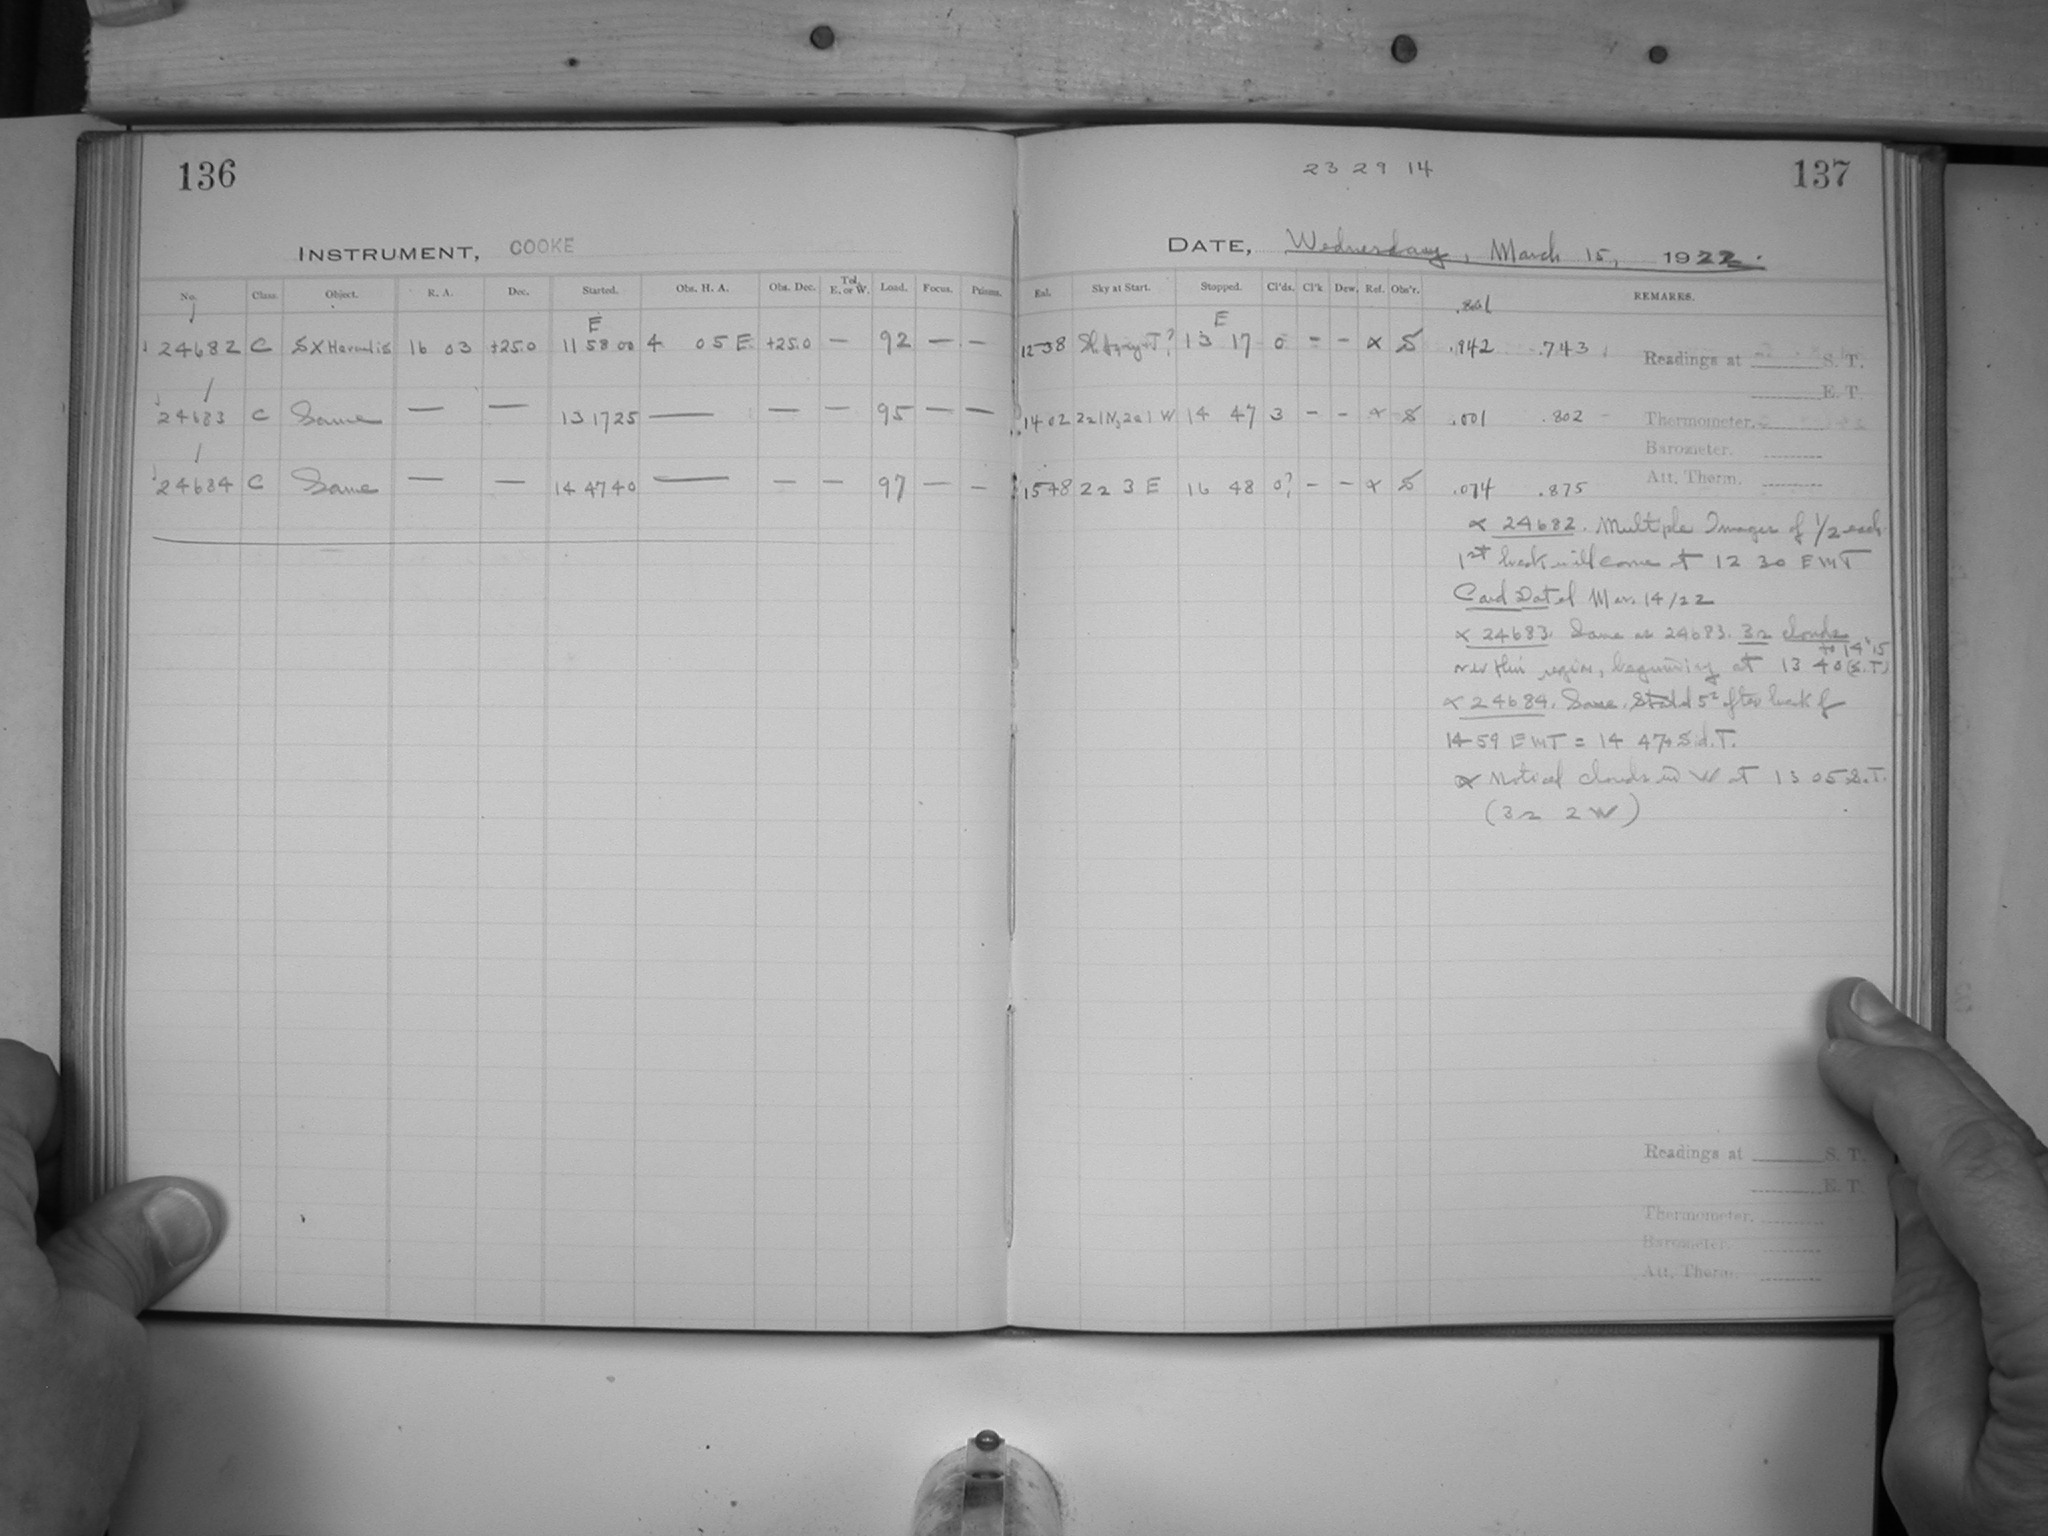 136
INSTRUMENT, COOKE
No. Class. Object. R. A. Dec. Started. Obs. H. A. Obs. Dec. Tel. E. or W. Load. Focus. Prisms.
E
24682 C SX Herculis 16 03 +25.0 11 58 00 4 05 E +25.0 — 92 — —
24683 C Same — — 13 17 25 — — — 95 — —
24684 C Same — — 14 47 40 — — — 97 — —
23 29 14
137
DATE, Wednesday, March 15, 1922.
Exl. Sky at Start. Stopped. Cl'ds. Cl'k Dew. Ref. Obs'r. REMARKS.
E
.861
12-38 13 17 0 = - α S .942 .743
Readings at S. T.
E. T.
14 02 2 2 1 N, 2 2 1 W 14 47 3 - - α S .001 .802
Thermometer.
Barometer.
Att. Therm.
15 48 2 2 3 E 16 48 0? - - α S .074 .875
α 24682. Multiple Images of 1/2 each
1st break will come at 12 30 EMT
Card Dated Mar. 14/22
α 24683. Same as 24683. 32 clouds
to 14 15
over this region, beginning at 13 40 (S.T)
α 24684. Same. Started 5 after break of
14-59 EMT = 14 47 Sid. T.
α Noticed clouds in W at 13 05 S.T.
(32 2 W)
Readings at S. T.
E. T.
Thermometer.
Barometer.
Att. Therm.